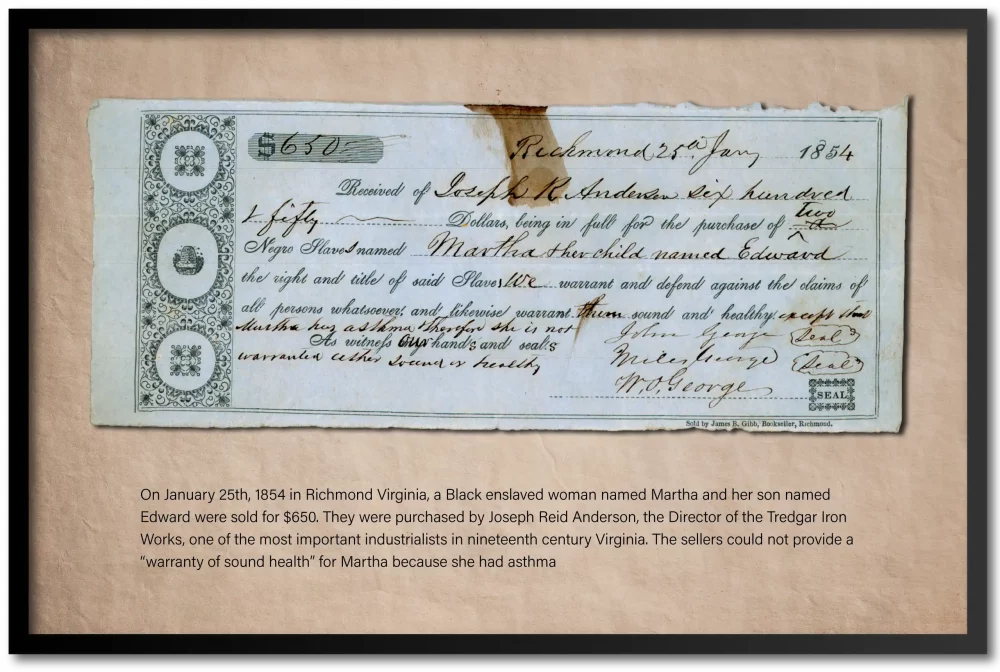 $650-
Richmond 25th Jany 1854
Received of Joseph R Anderson six hundred
& fifty Dollars, being in full for the purchase of two
Negro Slaves named Martha & her child named Edward
the right and title of said Slaves We warrant and defend against the claims of
all persons whatsoever, and likewise warrant them sound and healthy. except that
Martha has asthma therefore she is not
As witness our hands and seals
warranted either sound or healthy
John George Seal
Miles George Seal
W. O. George SEAL
Sold by James B. Gibb, Bookseller, Richmond.
On January 25th, 1854 in Richmond Virginia, a Black enslaved woman named Martha and her son named
Edward were sold for $650. They were purchased by Joseph Reid Anderson, the Director of the Tredgar Iron
Works, one of the most important industrialists in nineteenth century Virginia. The sellers could not provide a
“warranty of sound health” for Martha because she had asthma